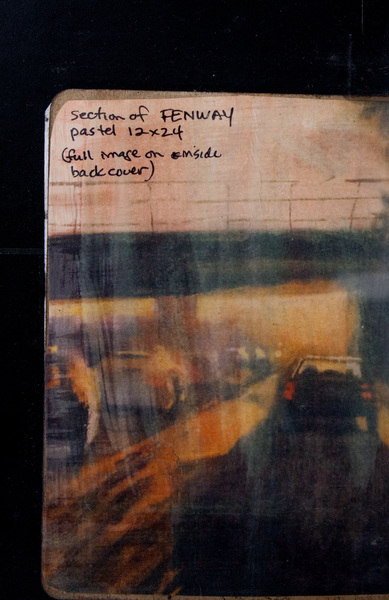 section of FENWAY
pastel 12x24
(full image on inside
back cover)